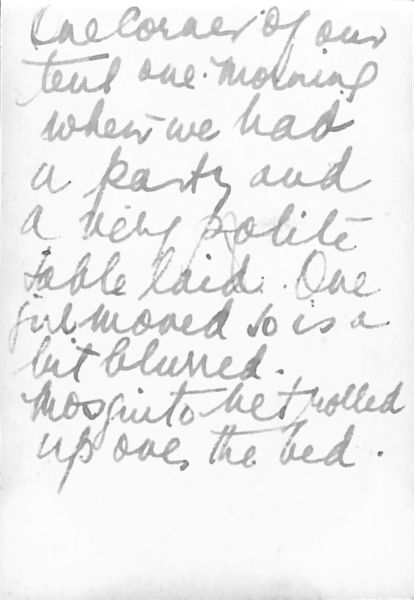 One Corner of our
tent one morning
when we had
a party and
a very polite
table laid. One
girl moved so is a
bit blurred.
Mosquito net rolled
up over the bed.